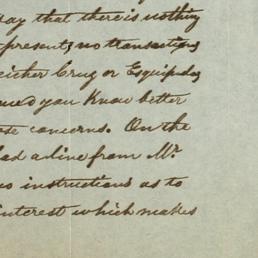 say that there is nothing
present, no transactions
either Cruz or Esquipulas
you know better
concerns. On the
had a line from Mr.
no instructions as to
interest which makes